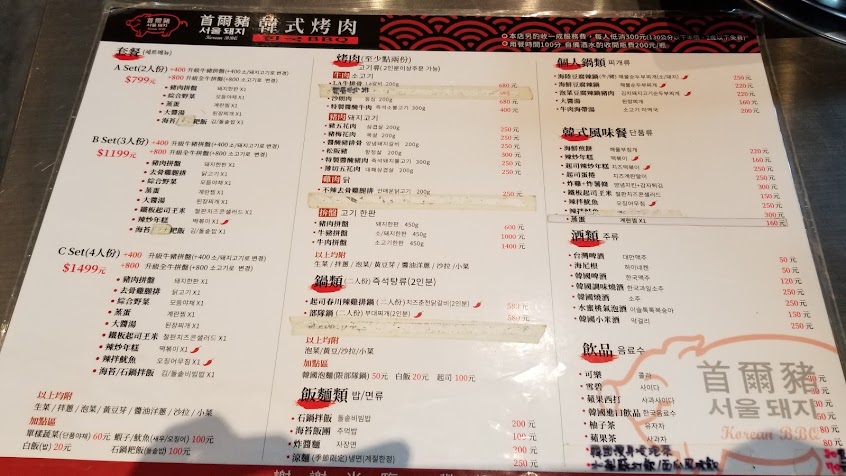 首爾豬 韓式烤肉
서울돼지 한국BBQ
Korean BBQ
套餐
A Set(2人份)
$799元
+400 升級牛豬拼盤
+800 升級全牛拼盤
豬肉拼盤 돼지한판 X1
綜合野菜 모듬야채 X1
蒸蛋 계란찜 X1
大醬湯 된장찌개 X1
B Set(3人份)
$1199元
+400 升級牛豬拼盤(+400 소/돼지고기로 변경)
+800 升級全牛拼盤(+800 소고기로 변경)
豬肉拼盤 돼지한판 X1
去骨雞腿排 닭고기 X1
綜合野菜 모듬야채 X1
蒸蛋 계란찜 X1
大醬湯 된장찌개 X1
鐵板起司玉米 철판치즈콘샐러드 X1
辣炒年糕 떡볶이 X1
C Set(4人份)
$1499元
+400 升級牛豬拼盤(+400 소/돼지고기로 변경)
+800 升級全牛拼盤(+800 소고기로 변경)
豬肉拼盤 돼지한판 X1
去骨雞腿排 닭고기 X1
綜合野菜 모듬야채 X1
蒸蛋 계란찜 X1
大醬湯 된장찌개 X1
鐵板起司玉米 철판치즈콘샐러드 X1
辣炒年糕 떡볶이 X1
辣拌魷魚 오징어무침 X1
海苔/石鍋拌飯 김/돌솥비빔밥 X1
以上均附
生菜 / 拌蔥 / 泡菜 / 黃豆芽 / 醬油洋蔥 / 沙拉 / 小菜
加點區
單樣蔬菜(단품야채) 60元 蝦子/魷魚(새우/오징어) 100元
白飯(밥) 20元 石鍋拌飯(돌솥비빔밥) 100元
烤肉(至少點兩份)
고기류 (2인분이상주문 가능)
牛肉 소고기
LA牛排骨 LA갈비 200g 680元
沙朗肉 등심 200g 680元
特製醬醃牛肉 즉석소불고기 200g 400元
豬肉 돼지고기
豬五花肉 삼겹살 200g 250元
豬梅花肉 목살 200g 250元
醬醃豬排骨 양념돼지갈비 200g 250元
松阪豬 항정살 200g 300元
特製醬醃豬肉 즉석돼지불고기 200g 250元
薄切五花肉 대패삼겹살 200g 250元
雞肉 닭
不辣去骨雞腿排 안매운닭고기 200g 250元
拼盤 고기 한판
豬肉拼盤 돼지한판 450g 600元
牛豬拼盤 소/돼지한판 450g 1000元
牛肉拼盤 소고기한판 450g 1400元
以上均附
生菜 / 拌蔥 / 泡菜 / 黃豆芽 / 醬油洋蔥 / 沙拉 / 小菜
鍋類(二人份) 즉석탕류(2인분)
起司春川辣雞排鍋 (二人份) 치즈춘천닭갈비(2인분) 580元
部隊鍋 (二人份) 부대찌개(2인분) 580元
以上均附
泡菜/黃豆/沙拉/小菜
加點區
韓國泡麵(限部隊鍋) 50元 白飯 20元 起司 100元
飯麵類 밥/면류
石鍋拌飯 돌솥비빔밥 200元
海苔飯糰 주먹밥 100元
炸醬麵 자장면 200元
涼麵 (季節限定)냉면(계절한정) 250元
個人鍋類 찌개류
海陸豆腐辣鍋(牛/豬) 해물순두부찌개(소/돼지) 250元
海鮮豆腐辣鍋 해물순두부찌개 220元
泡菜豆腐豬辣鍋 김치돼지고기순두부찌개 220元
大醬湯 된장찌개 160元
牛肉海帶湯 소고기 미역국 200元
韓式風味餐 단품류
海鮮煎餅 해물부침개 220元
辣炒年糕 떡볶이 160元
起司辣炒年糕 치즈떡볶이 210元
起司蛋捲 치즈계란말이 250元
鐵板起司玉米 철판치즈콘샐러드 150元
辣拌魷魚 오징어무침 250元
蒸蛋 계란찜 X1 160元
酒類 주류
台灣啤酒 대만맥주
海尼根 하이네켄
韓國啤酒 한국맥주
韓國調味燒酒 한국과일소주
韓國燒酒 소주
水蜜桃氣泡酒 이슬톡톡복숭아
韓國小米酒 막걸리
飲品 음료수
可樂 콜라
雪碧 사이다
蘋果西打 사과사이다
韓國進口飲品 한국음료수
柚子茶 유자차
蘋果茶 사과차
首爾豬
서울돼지
Korean BBQ